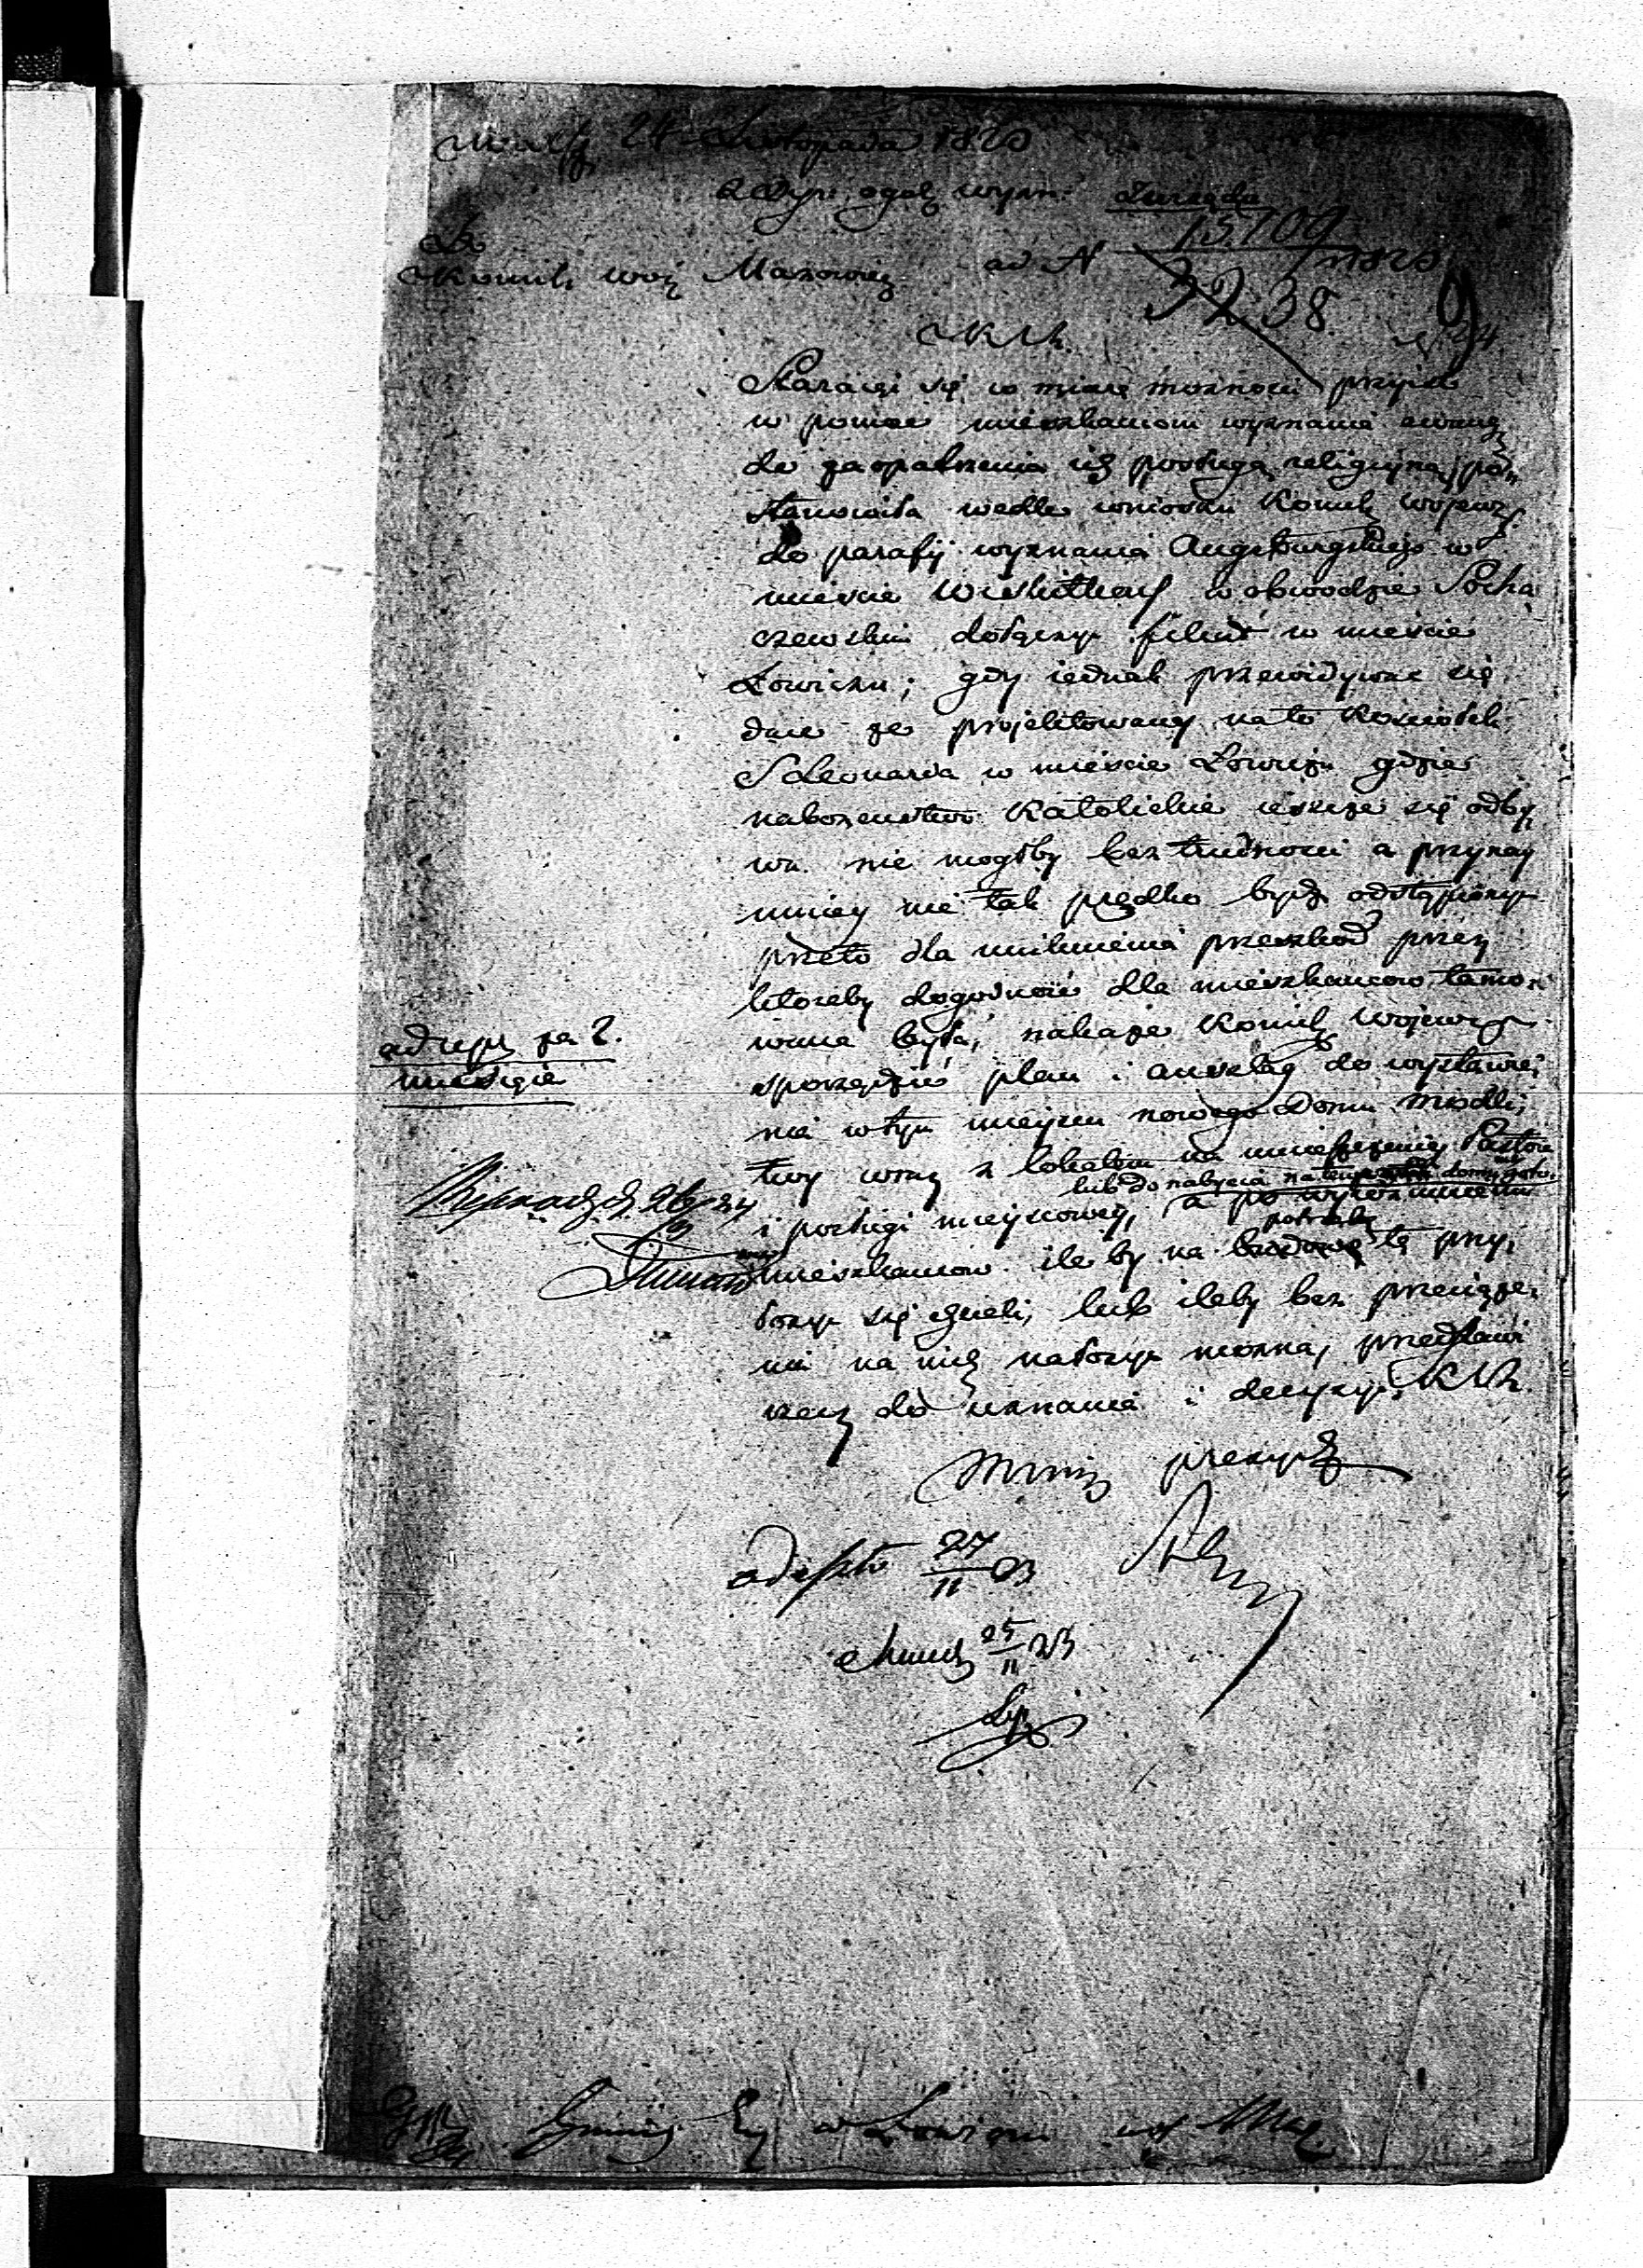 24 Listopada 1823
Dyr: ogól: wyzn:
Do
Komiss: woj: Mazowieg ad N 15.700/1823
3238
K R
Staraiąc się w miarę możności przyiść
w pomoc mieszkańcom wyznania ewang:
do zaopatrzenia ich posługą religijną, po-
stanowiła wedle wniosku Komiss: Wojewz:
do parafij wyznania Augsburgskiego w
mieście Wiskitkach w obwodzie Socha
czewskim dołączyć filiał w mieście
Łowiczu; gdy iednak przewidywać się
daie że projektowany na to Kościołek
S Leonarda w mieście Łowiczu gdzie
nabożeństwo Katolickie ieszcze się odby,
wa nie mógłby bez trudności a przynay
mniey nie tak prędko bydź odstąpiony
przeto dla uniknienia przeszkód przez
któreby dogodność dla mieszkańców tamo-
wana była, nakaże Komiss: Wojewz:
sporządzić plan i anszlag do wystawie,
nia w tym mieyscu nowego Domu Modli,
twy wraz z lokalem na umieszczenie Pastora
lub do nabycia na ten domu goto.
i posługi mieyscowey, a po wyrozumieniu
mieszkańców ile by na potrzebę tę przy,
łożyć się chcieli, lub ileby bez przeciąże,
nia na nich nałożyć można, przedstawi
rzecz do uznania i decyzyi K R.
Minis prezyd
ad exped za 2.
miesiące
27/11 23
25/11 23
Gminy Ew w Łowiczu w Maz.